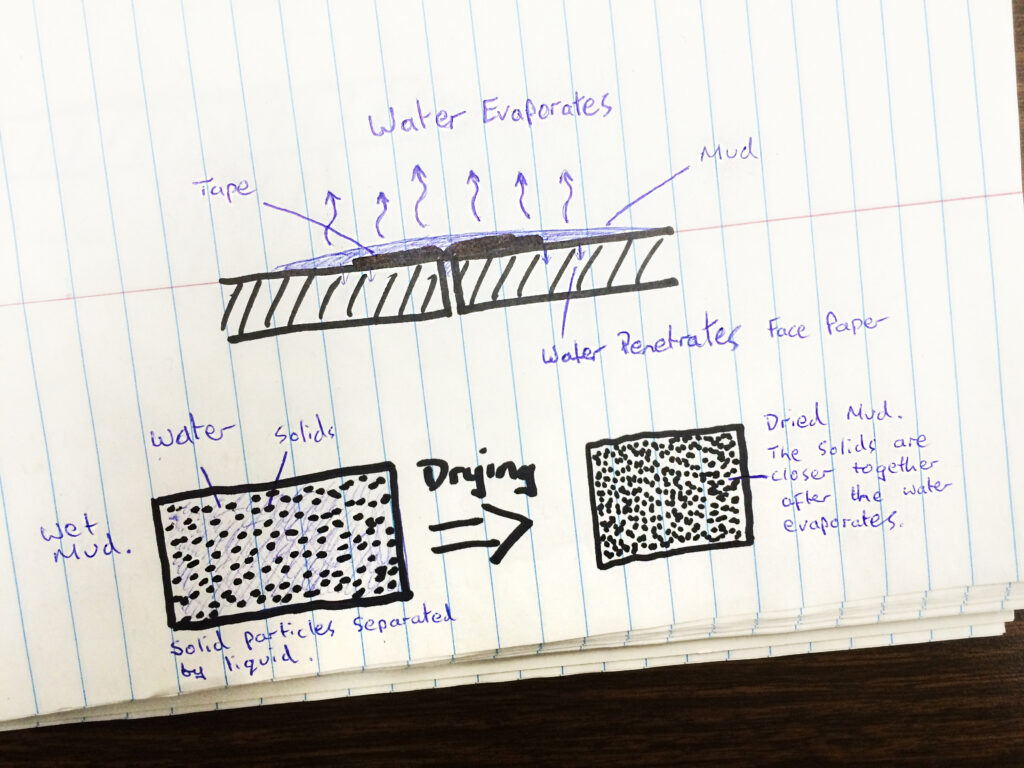 Water Evaporates
Tape
Mud
Water Penetrates Face Paper
Water
Solids
Wet
Mud.
Drying
Dried Mud.
The Solids are
closer together
after the water
evaporates.
Solid particles Separated
by liquid.